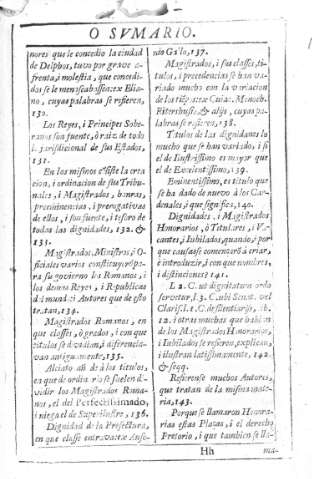 O SVMARIO.
nores que le concedio la ciudad
de Delphos, tuvo por grave a-
frenta, i molestia, que concedi-
dos se le menoscabassen ex Elia-
no, cuyas palabras se refieren,
130.
Los Reyes, i Principes Sobe-
ranos son fuente, ò raiz de toda
Iurisdicional de sus Estados,
131.
En los mismos consiste la crea
cion, i ordinacion de sus Tribu-
nales, i Magistrados, honras,
preeminencias, i prerogativas
de ellos, i son fuente, i tesoro de
todas las dignidades, 132. &
133.
Magistrados, Ministros, i O-
ficiales varios constituyeron pa-
ra su govierno los Romanos, i
los demas Reyes, i Republicas
del mundo; i Autores que de esto
tratan, 134.
Magistrados Romanos, en
que classes, ò grados, i con que
titulos se dividian, i diferencia-
van antiguamente, 135.
Alciato añade à los titulos,
en que de ordinario se suelen di-
vidir los Magistrados Roma-
nos, el del Perfectissimado,
i niega el de Superilustre, 136.
Dignidad de la Prefectura,
en que classe entrava ex Auso-
nio Galo, 137.
Magistrados, i sus classes, ti-
tulos, i precedencias se han va-
riado mucho con la variacion
de los tiempos ex Cuiac. Menoch.
Ritershusio & alijs, cuyas pa-
labras se refieren, 138.
Titulos de las dignidades lo
mucho que se han variado, i si
el de Ilustrissimo es mayor que
el de Excelentissimo, 139.
Eminentissimo, es titulo que
se ha dado de nuevo à los Car-
denales, i que significa, 140.
Dignidades, i Magistrados
Honorarios, ò Titulares, i Va-
cantes, i Iubilados, quando, i por
que causas se comenzarõ à criar,
è introducir, i con que nombres,
i distinciones? 141.
L 2. C. ut dignitatum ordo
servetur, l. 3. C. ubi Senat. vel
Clariss. l. C. de silentiarijs, lib.
12. i otras muchas que hablan
de los Magistrados Honorarios,
i Iubilados se refieren, explican,
i ilustran latissimamente, 142.
& seqq.
Refierense muchos Autores,
que tratan de la misma mate-
ria, 143.
Porque se llamaron Honora-
rias estas Plaças, i el derecho
Pretorio, i que tambien se lla-
Hh
ma-